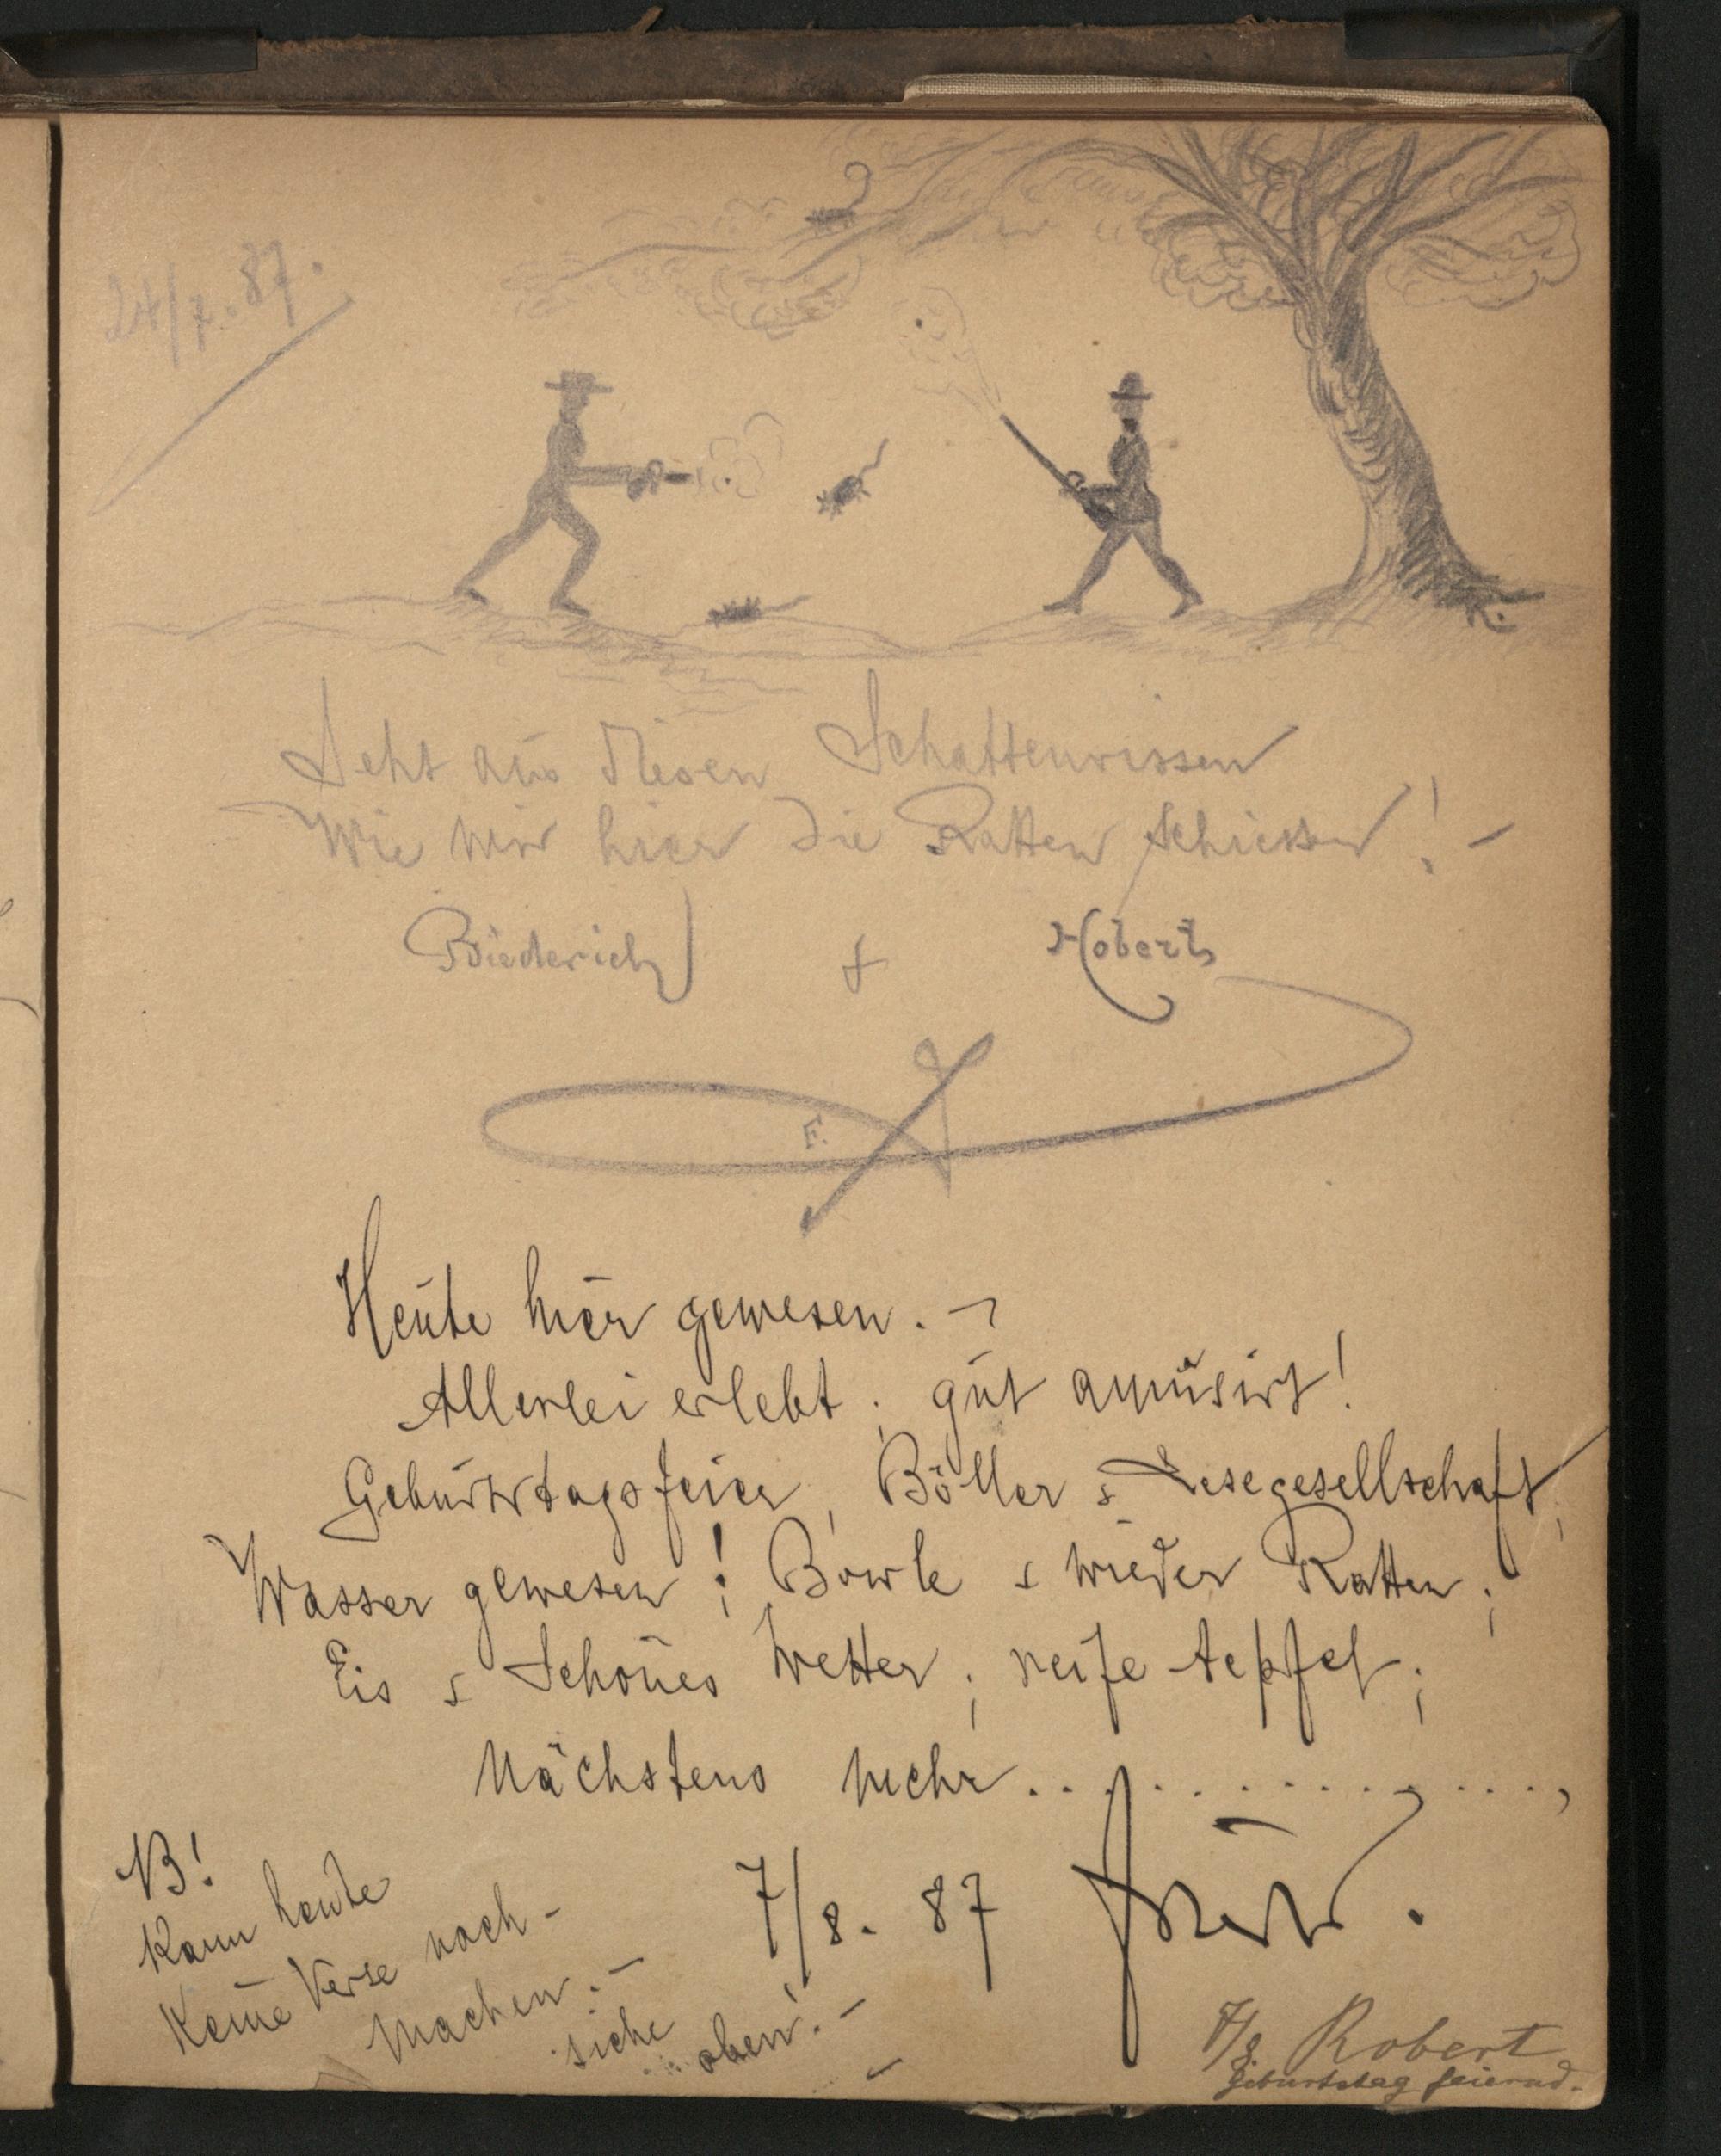 24/7. 87.
Seht aus diesen Schattenrissen
Wie wir hier die Ratten schiessen! -
Biederich + Robert
F.
Heute hier gewesen. -
Allerlei erlebt; gut amüsirt!
Geburtstagsfeier, Böller & Lesegesellschaft,
Wasser gewesen! Bowle & wieder Ratten;
Eis & Schönes Wetter; reife Aepfel;
Nächstens mehr................,
NB!
Kann heute
Keine Verse noch-
machen. -
siehe oben! -
7/8. 87
7/8 Robert
Geburtstag feiernd.